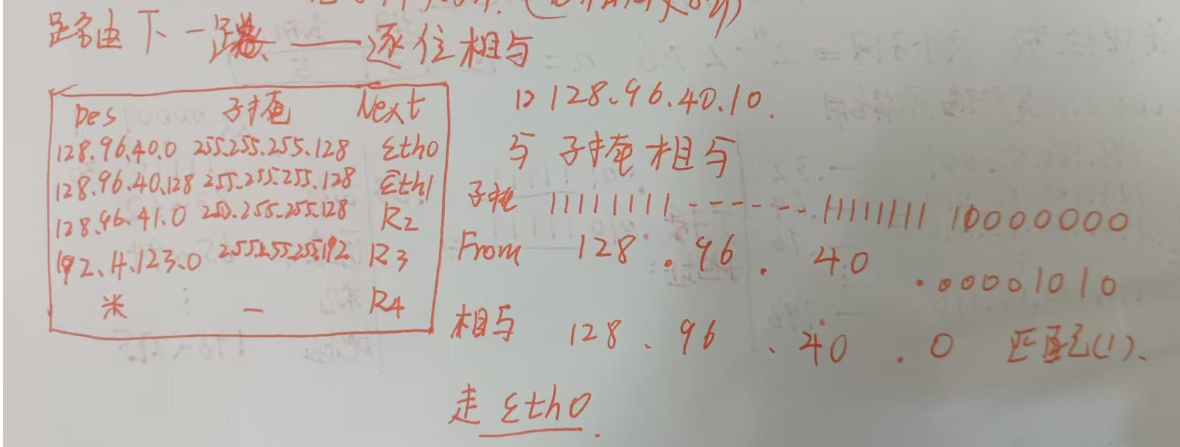 路由下一跳 —— 逐位相与
Des 子掩 Next
128.96.40.0 255.255.255.128 Eth0
128.96.40.128 255.255.255.128 Eth1
128.96.41.0 255.255.255.128 R2
192.4.123.0 255.255.255.192 R3
* — R4
1> 128.96.40.10.
与子掩相与
子掩 11111111 ------- 11111111 10000000
From 128.96.40.00001010
相与 128.96.40.0 匹配(1).
走 Eth0.